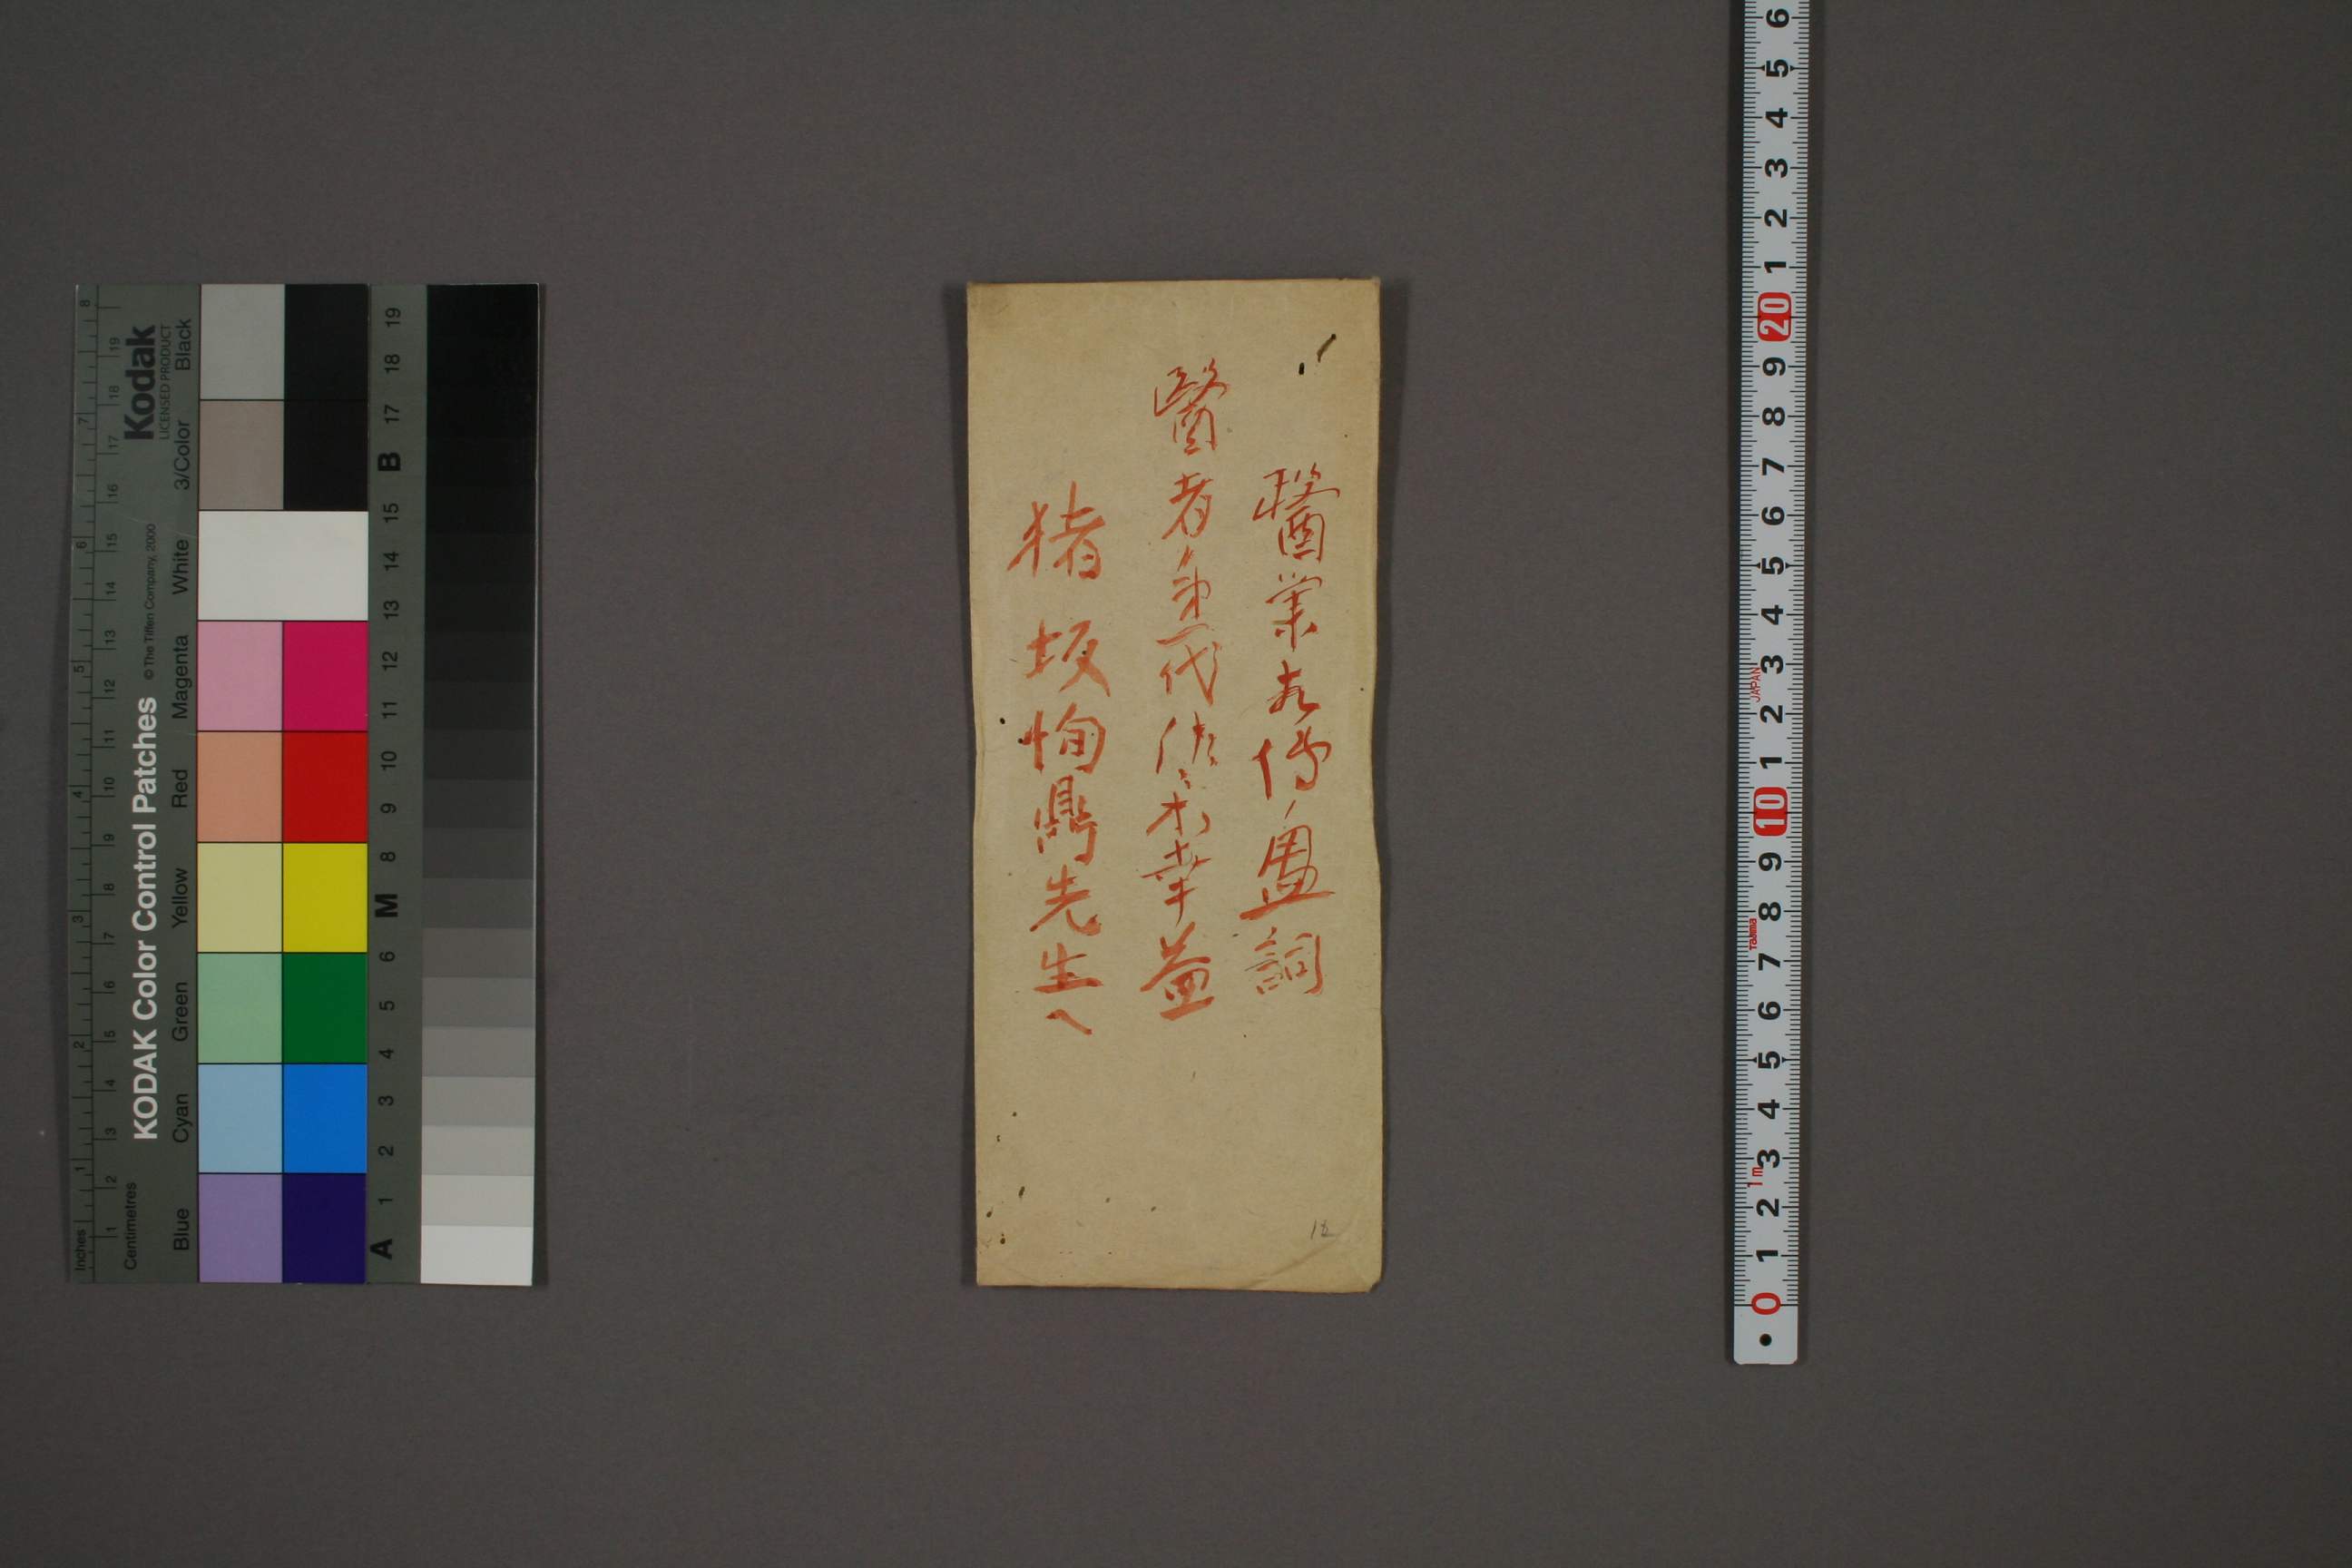 醫業相傳ノ盟詞
醫者第一代佐々木幸益
猪坂恂鼎先生へ
12
KODAK Color Control Patches
© The Tiffen Company, 2000
Kodak
LICENSED PRODUCT
Inches 1 2 3 4 5 6 7 8
Centimetres 1 2 3 4 5 6 7 8 9 10 11 12 13 14 15 16 17 18 19
Blue Cyan Green Yellow Red Magenta White 3/Color Black
A 1 2 3 4 5 6 M 8 9 10 11 12 13 14 15 B 17 18 19
6 5 4 3 2 1 20 9 8 7 6 5 4 3 2 1 10 9 8 7 6 5 4 3 2 1 0
JAPAN
Tajima
1m